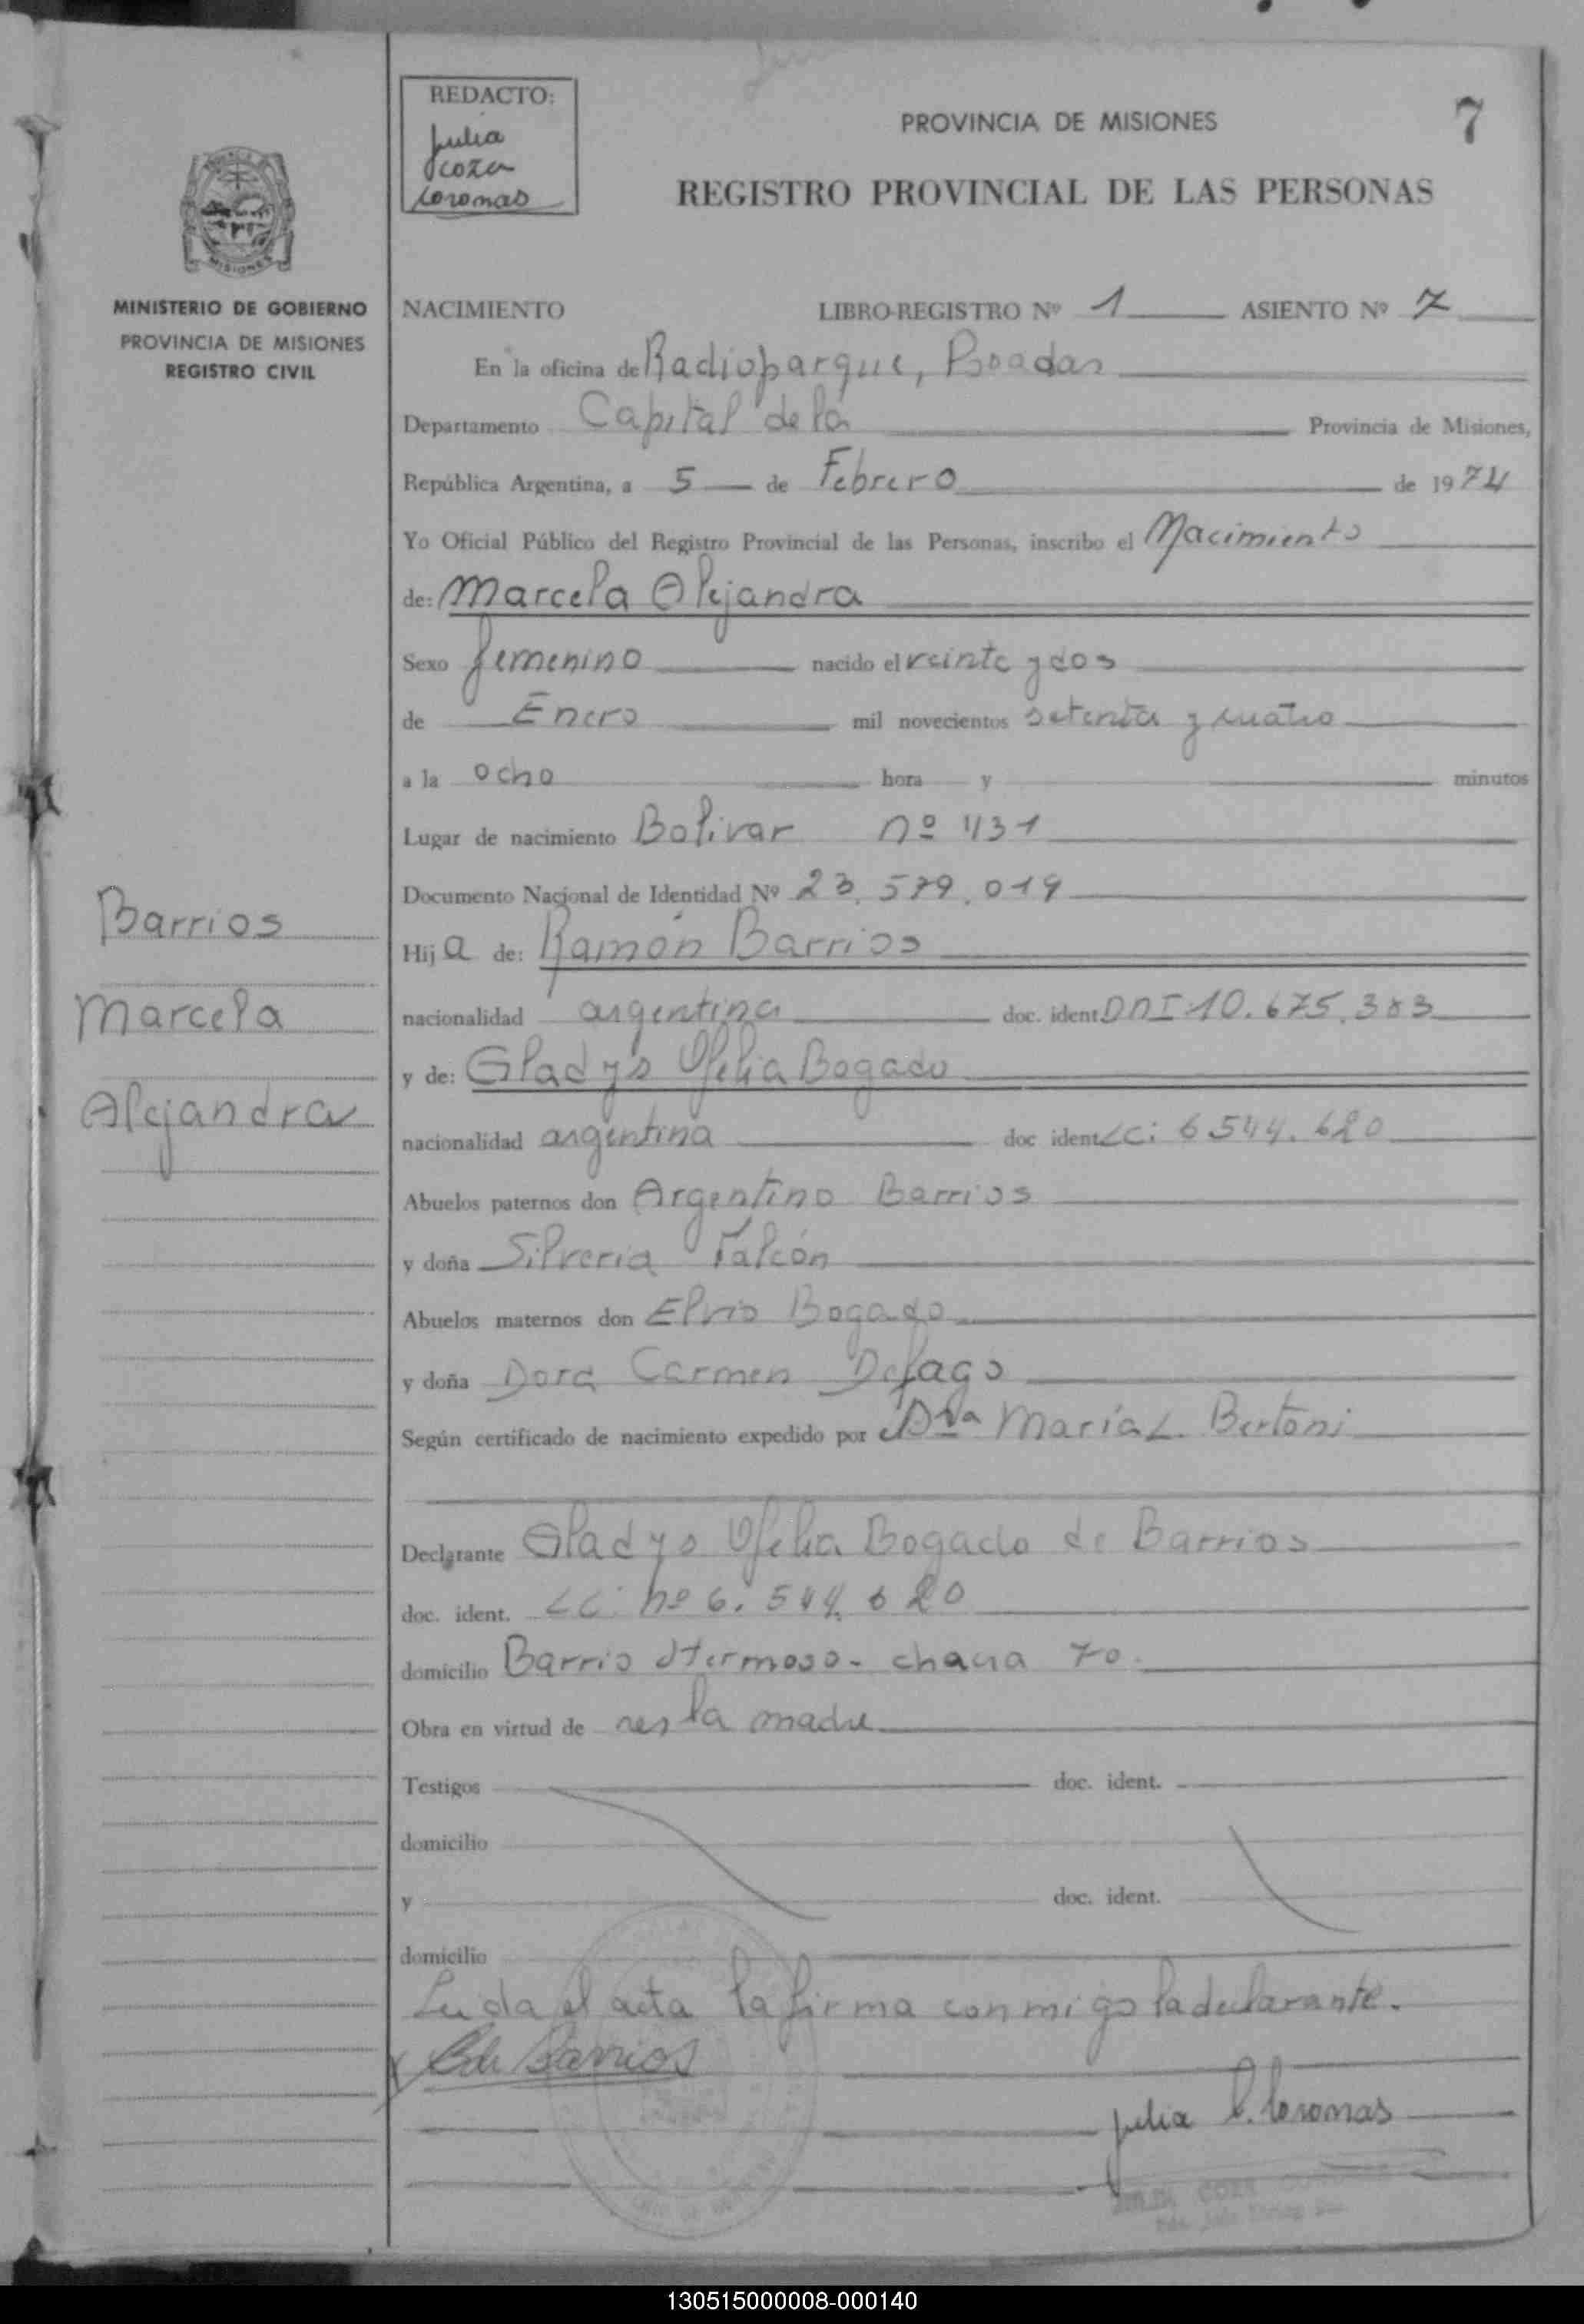 REDACTO:
Julia
Coza
Coromas
PROVINCIA DE MISIONES
7
REGISTRO PROVINCIAL DE LAS PERSONAS
MISIONES
MINISTERIO DE GOBIERNO
PROVINCIA DE MISIONES
REGISTRO CIVIL
NACIMIENTO LIBRO-REGISTRO Nº 1 ASIENTO Nº 7
En la oficina de Radioparque, Posadas
Departamento Capital de la Provincia de Misiones,
República Argentina, a 5 de Febrero de 1974
Yo Oficial Público del Registro Provincial de las Personas, inscribo el Nacimiento
de: Marcela Alejandra
Sexo femenino nacido el veinte y dos
de Enero mil novecientos setenta y cuatro
a la ocho hora y minutos
Lugar de nacimiento Bolivar nº 1131
Documento Nacional de Identidad Nº 23.579.019
Barrios
Marcela
Alejandra
Hija de: Ramón Barrios
nacionalidad argentina doc. ident DNI 10.675.383
y de: Gladys Ofelia Bogado
nacionalidad argentina doc ident LC: 6544.620
Abuelos paternos don Argentino Barrios
y doña Silveria Falcón
Abuelos maternos don Elvio Bogado
y doña Dora Carmen Defago
Según certificado de nacimiento expedido por Dra María L. Bertoni
Declarante Gladys Ofelia Bogado de Barrios
doc. ident. LC. nº 6.544.620
domicilio Barrio Hermoso - chacra 70.
Obra en virtud de ser la madre
Testigos doc. ident.
domicilio
y doc. ident.
domicilio
Leida el acta la firma conmigo la declarante.
B de Barrios
Julia C. Coromas
130515000008-000140